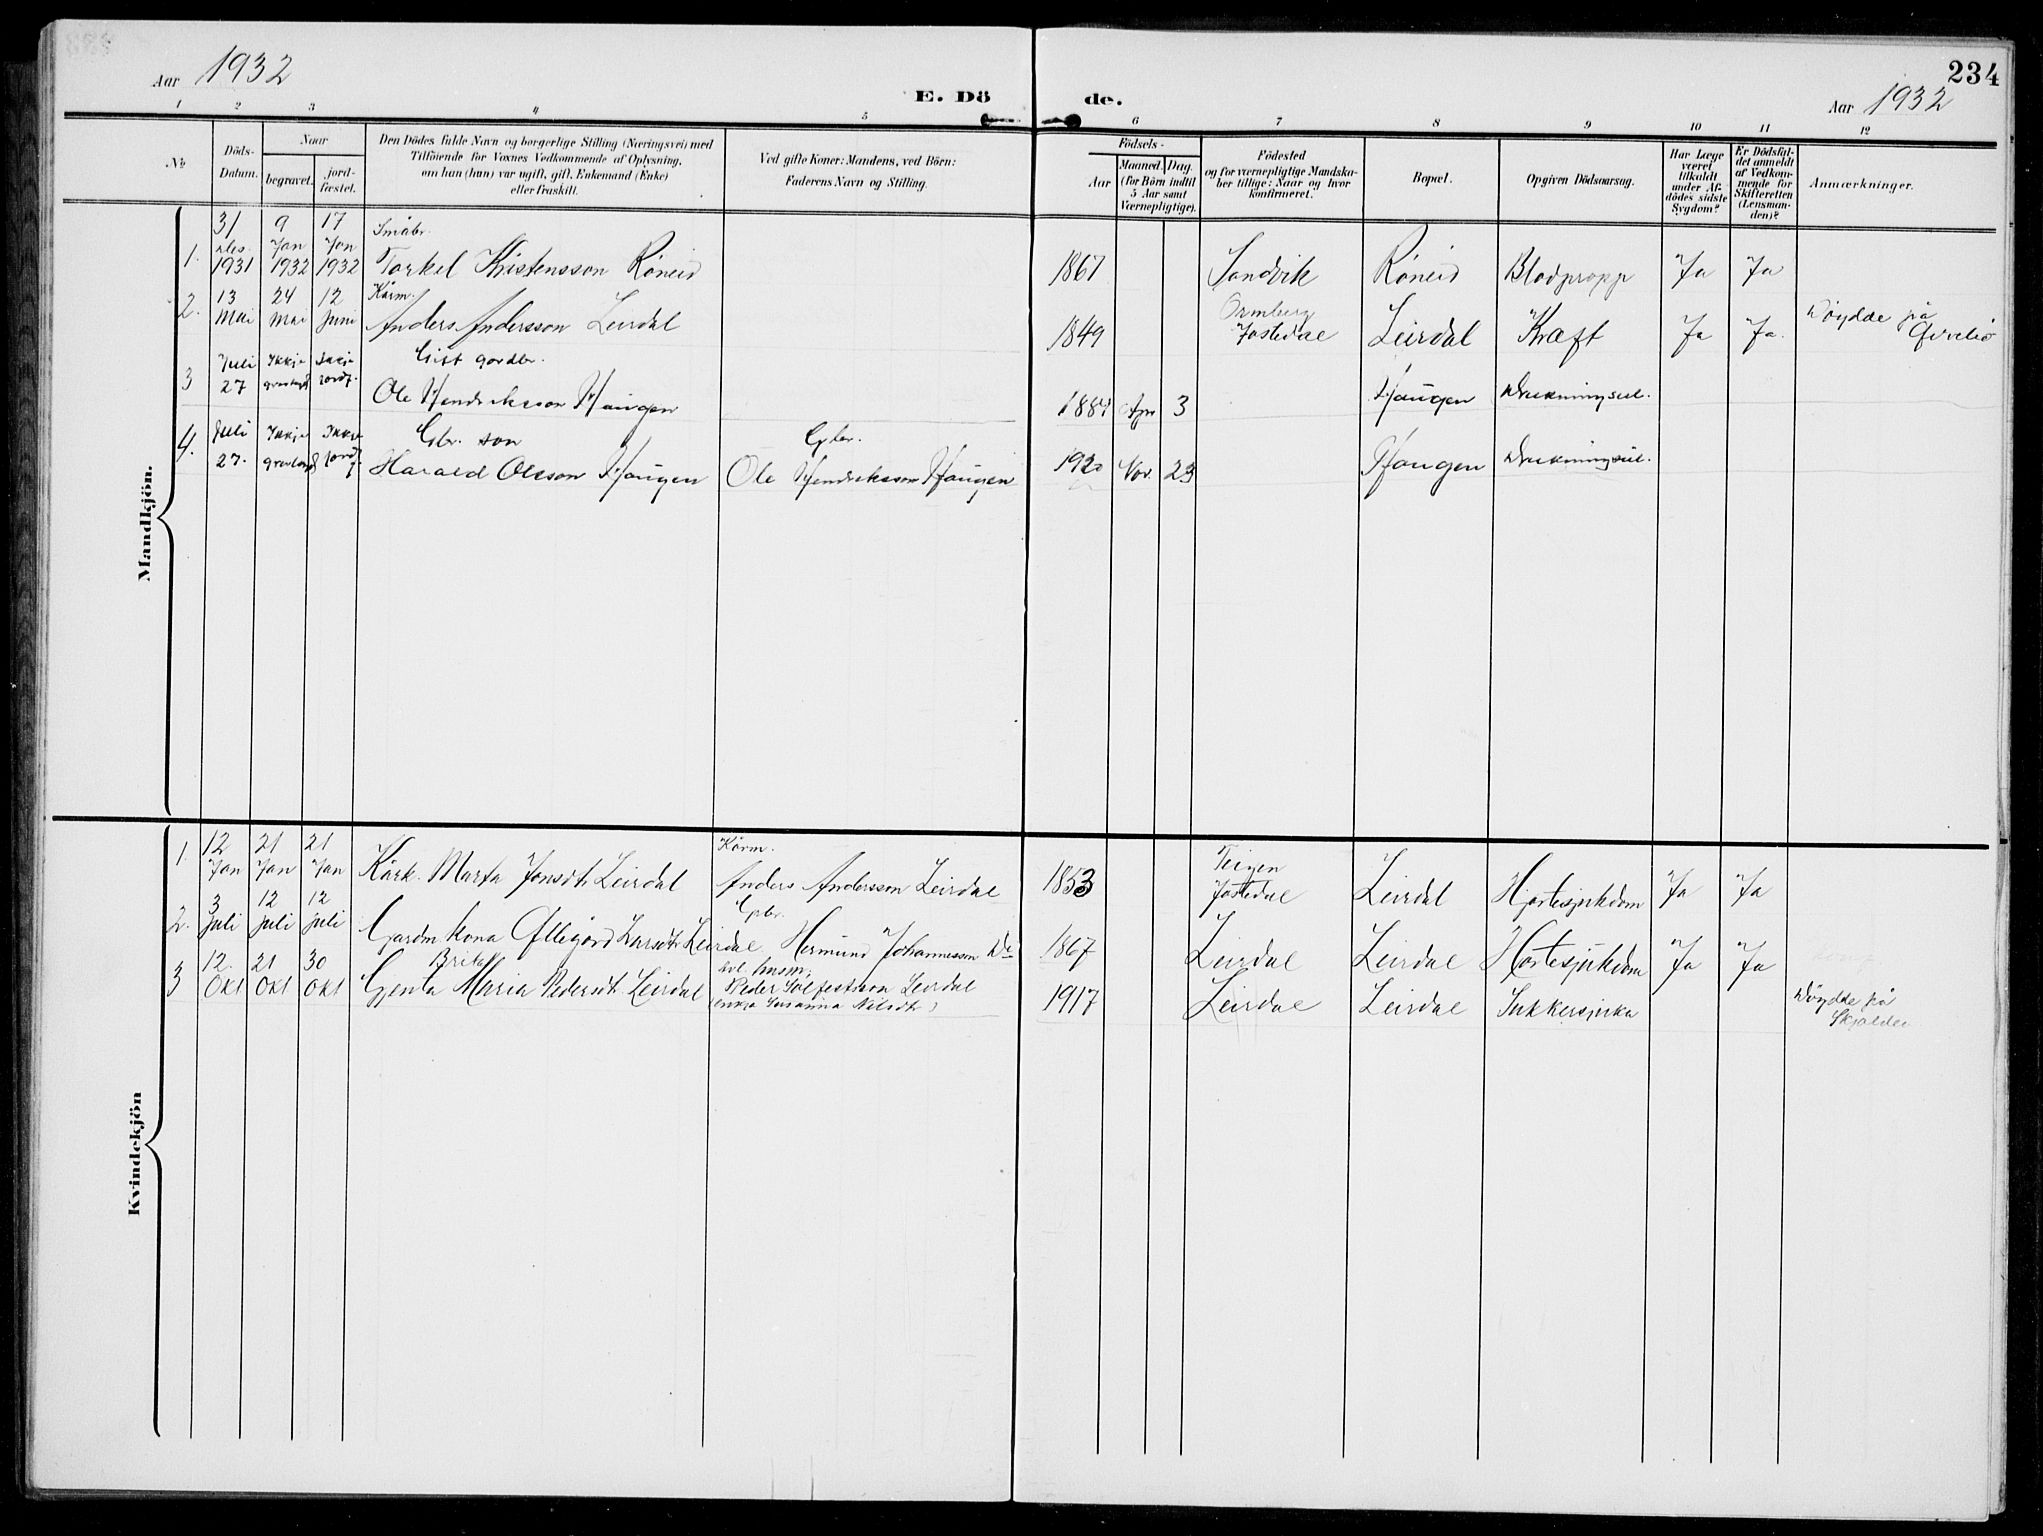 234
Aar 1932
E. Dö
de.
Aar 1932
1 2 3 4 5 6 7 8 9 10 11 12
No
Döds-
Datum.
Naar
begravet.
jord-
fæstet.
Den Dödes fulde Navn og borgerlige Stilling (Næringsvei) med
Tilföiende for Voxnes Vedkommende af Oplysning,
om han (hun) var ugift, gift, Enkemand (Enke)
eller fraskilt.
Ved gifte Koner: Mandens, ved Börn:
Faderens Navn og Stilling.
Födsels-
Aar
Maaned. Dag.
(for Börn indtil
5 Aar samt
Værnepligtige).
Födested
og for værnepligtige Mandska-
ber tillige: Naar og hvor
konfirmeret.
Bopæl.
Opgiven Dödsaarsag.
Har Læge
været
tilkaldt
under Af-
dödes sidste
Sygdom?
Er Dödsfal-
det anmeldt
af Vedkom-
mende for
Skifteretten
(Lensman-
den)?
Anmærkninger.
Mandkjön.
31 9 17 Småbr.
des. Jan Jan
1. 1931 1932 1932 Torkel Kristensson Röneid 1867 Sandvik Röneid Blodpropp Ja Ja
13 24 12 Kårm. Ormberg
2. Mai Mai Juni Anders Andersson Leirdal 1849 Jostedal Leirdal Kræft Ja Ja. Döydde på
Juli Ikkje Ikkje Gift gardbr.
3 27 gravlagd jordf. Ole Hendriksson Haugen 1887 Apr 3 Haugen Drukningsul.
Juli Ikkje Ikkje Gbr. son Gbr.
4. 27. gravlagd jordf. Harald Olsson Haugen Ole Hendriksson Haugen 1920 Nov. 23 Haugen Drukningsul.
Kvindekjön
12 21 21 Kårm. Teigen
1. Jan Jan Jan Kårk. Marta Jonsdtr Leirdal Anders Andersson Leirdal 1853 Jostedal Leirdal Hjartesjukdom Ja Ja
3 12 12 Gbr.
2. Juli Juli Juli Gardm kona Øllegård Larsdtr Leirdal Hermund Johannesson Do 1867 Leirdal Leirdal Hjartesjukdom Ja Ja
12. 21 30 Brita husm.
3 Okt Okt Okt Gjenta Maria Pedersdtr Leirdal Peder Sölfestsson Leirdal 1917 Leirdal Leirdal Sukkersjuka Döydde på
(enkja Susanna Nilsdtr) Skjolden